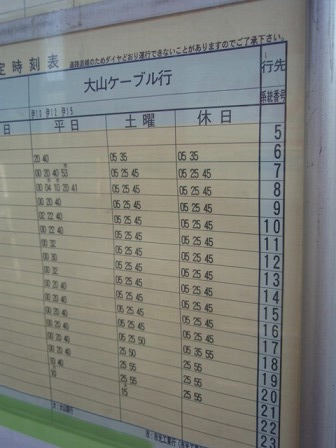 定時刻表 道路混雑のためダイヤどおり運行できないことがありますのでご了承下さい。
大山ケーブル行 行先
伊10 伊12 伊15 系統番号
日 平日 土曜 休日
5
20 40 05 35 05 35 6
00 20 40 53 05 25 45 05 25 45 7
00 04 10 20 41 05 25 45 05 25 45 8
00 20 40 05 25 45 05 25 45 9
02 22 40 05 25 45 05 25 45 10
00 20 40 05 25 45 05 25 45 11
00 32 05 25 45 05 25 45 12
00 30 05 25 45 05 25 45 13
00 32 05 25 45 05 25 45 14
00 20 40 05 25 45 05 25 45 15
00 20 40 05 25 45 05 25 45 16
00 20 40 05 25 50 05 25 45 17
00 20 40 25 50 05 35 55 18
40 25 55 25 55 19
25 55 25 55 20
15 25 55 21
22
23